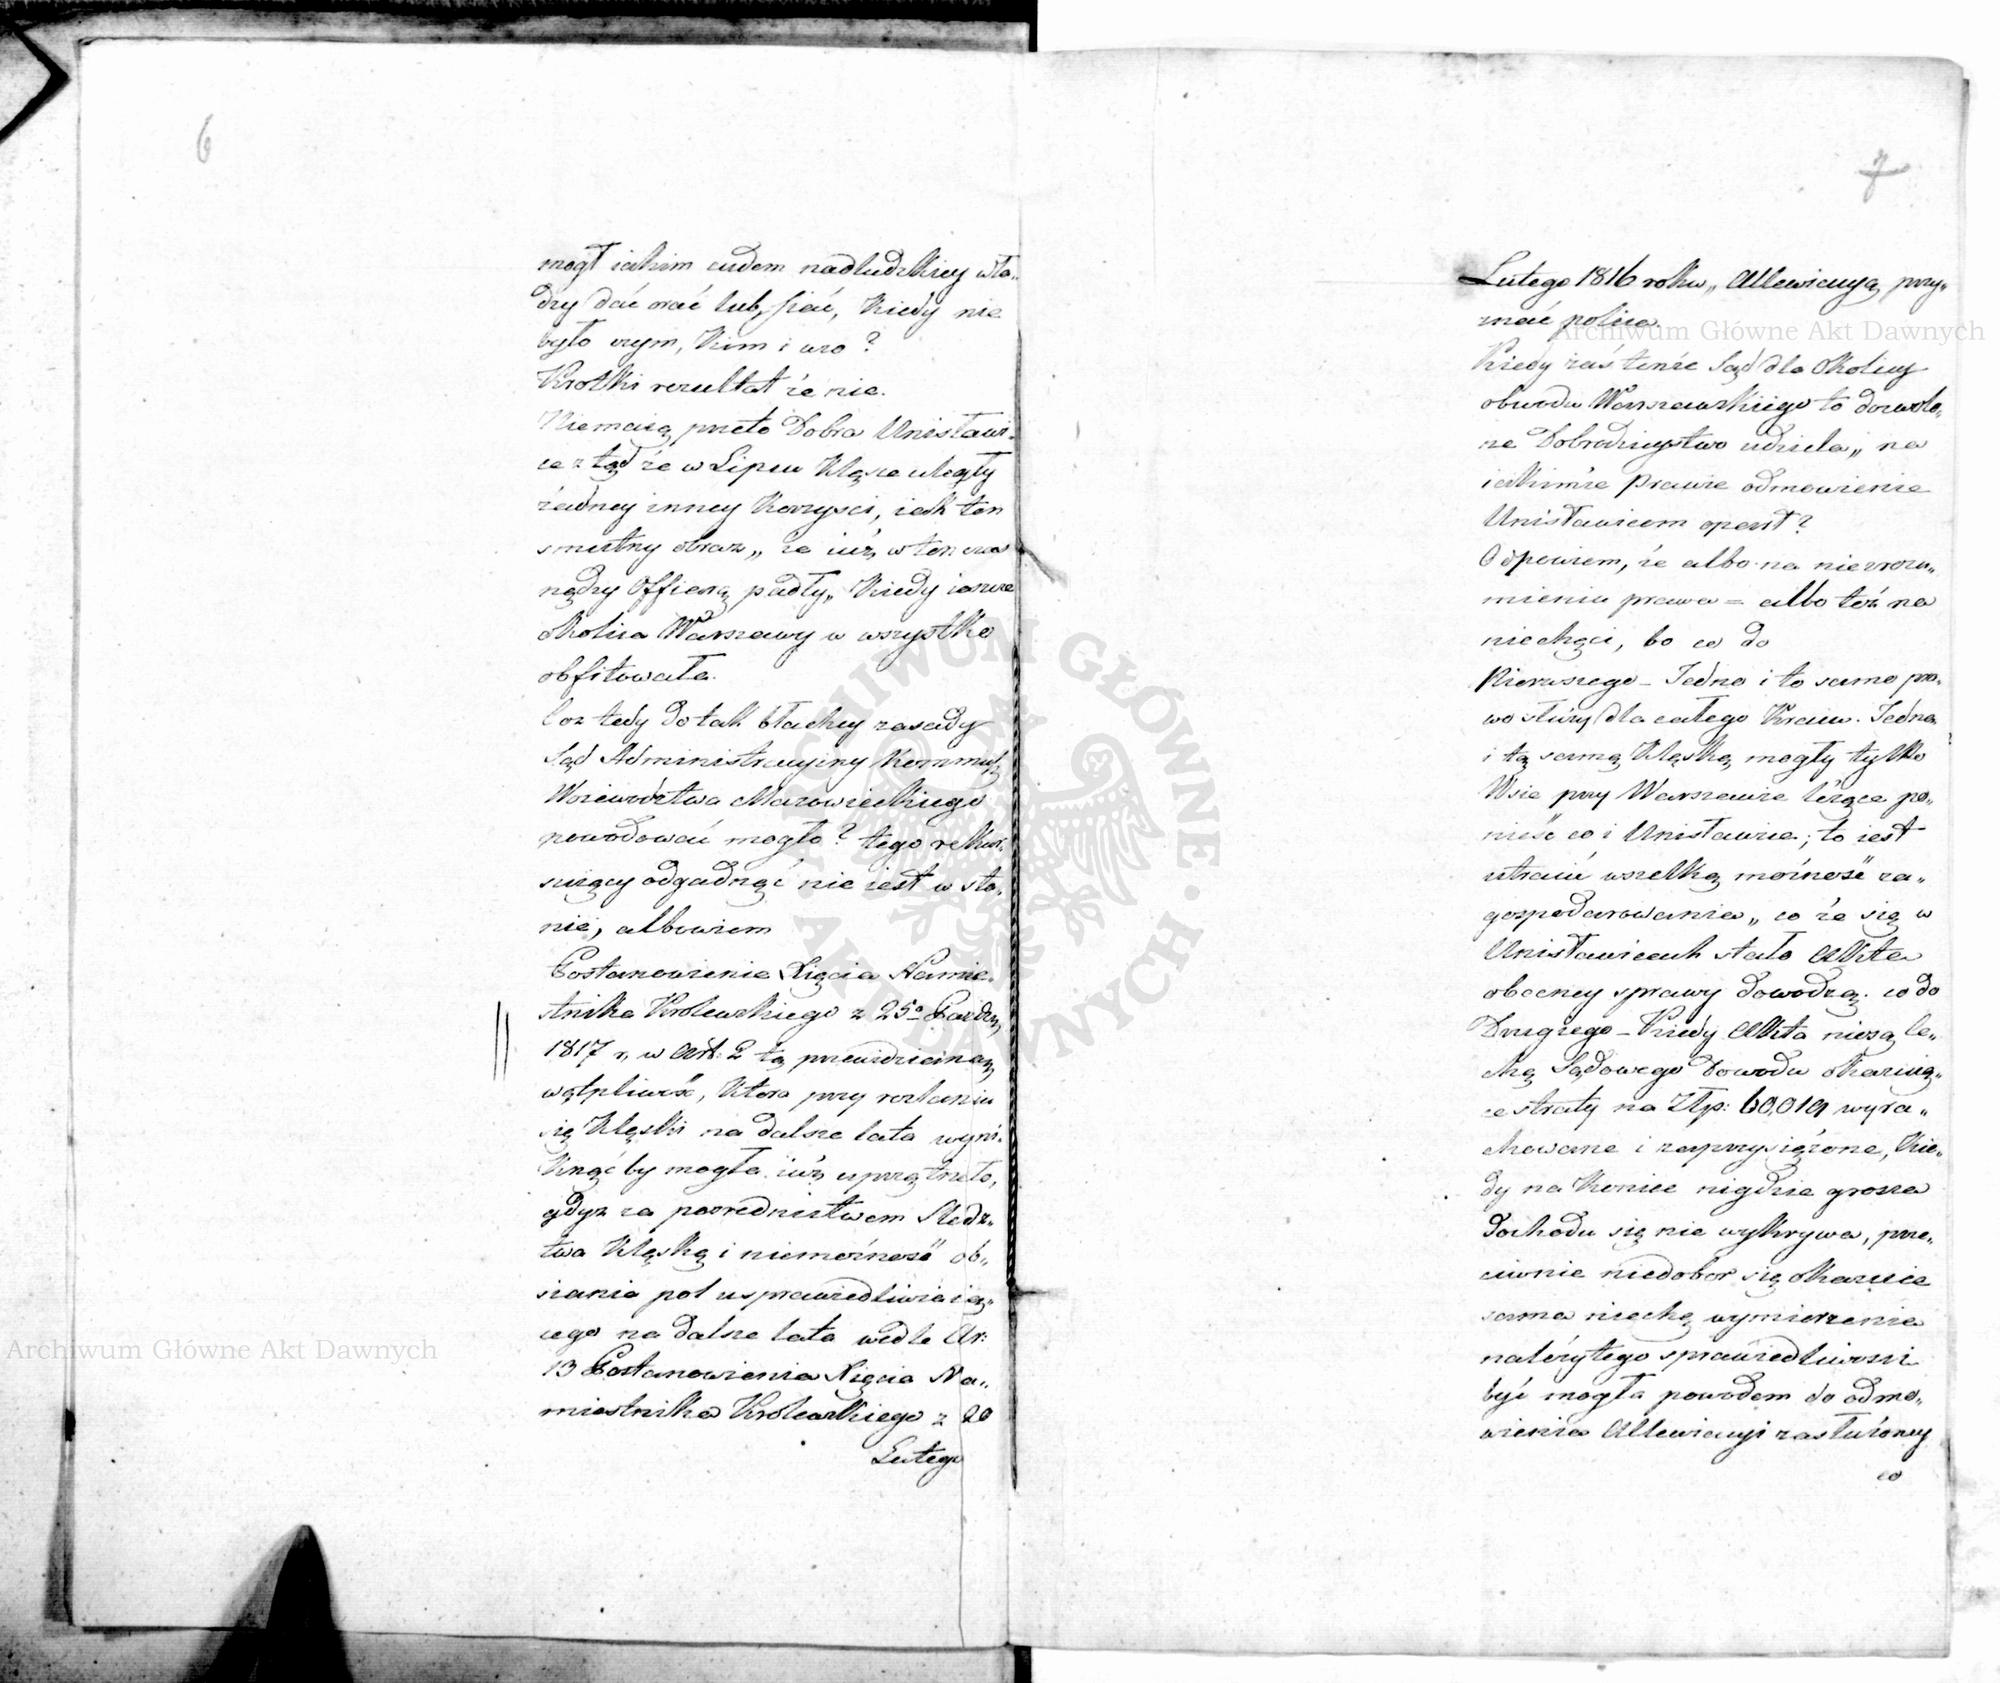 6
mogł iakim cudem nadludzkiey wła„
dzy dać orać lub siać, kiedy nie
było czym, kim i co?
Krotki rezultat że nie.
Niemaią przeto Dobra Unisławi„
ce z tąd że w Lipcu klęsce uległy
żadney inney korzyści, iak ten
smutny obraz„ że iuż w ten czas
nędzy offiarą padły„ kiedy ieszcze
okolica Warszawy w wszystko
obfitowała.
Coz tedy do tak błachey zasady
Sąd Administracyiny Kommissyi
Woiewodztwa Mazowieckiego
powodować mogło? tego rekur„
suiący odgadnąć nie iest w sta„
nie, albowiem
Postanowienie Xięcia Namie„
stnika Krolewskiego z 25º Paźdz.
1817 r. w Art: 2 tą przewidzianą
wątpliwość, ktora przy rozłaniu
się klęski na dalsze lata wyni„
knąć by mogła iuż uprzątneło,
gdyz za posrednictwem Sledz„
twa klęską i niemożność ob„
siania pol usprawiedliwiaią„
cego na dalsze lata wedle Ar:
13 Postanowienia Xięcia Na„
miestnika Krolewskiego z 20
Lutego
7
Lutego 1816 roku„ Allewiacyą przy„
znać poleca.
Kiedy zaś tenże Sąd dla okolicy
obwodu Warszawskiego to dozwolo„
ne Dobrodzieystwo udziela„ na
iakimże prawie odmowienie
Unisławicom oparł?
Odpowiem, że albo na niezrozu„
mieniu prawa = albo też na
niechęci, bo co do
Pierwszego – Jedno i to samo pra„
wo służy dla całego Kraiu. Jedną
i tą samą klęską mogły tylko
Wsie przy Warszawie leżące po„
nieść co i Unisławice; to iest
utracić wszelką możność za„
gospodarowania„ co że się w
Unisławicach stało Akta
obecney sprawy dowodzą. co do
Drugiego – Kiedy Akta niosą ce„
chą Sądowego Dowodu okazuią„
ce straty na Złp: 60,019 wyra„
chowane i zaprzysiężone, kie„
dy na koniec nigdzie grosza
Dochodu się nie wykrywa, prze„
ciwnie niedobor się okazuie
sama niechęć wymierzenia
należytego sprawiedliwosci
być mogła powodem do odmo„
wienia Allewiacyi zasłużoney
co
Archiwum Główne Akt Dawnych
Archiwum Główne Akt Dawnych
ARCHIWUM GŁÓWNE AKT DAWNYCH